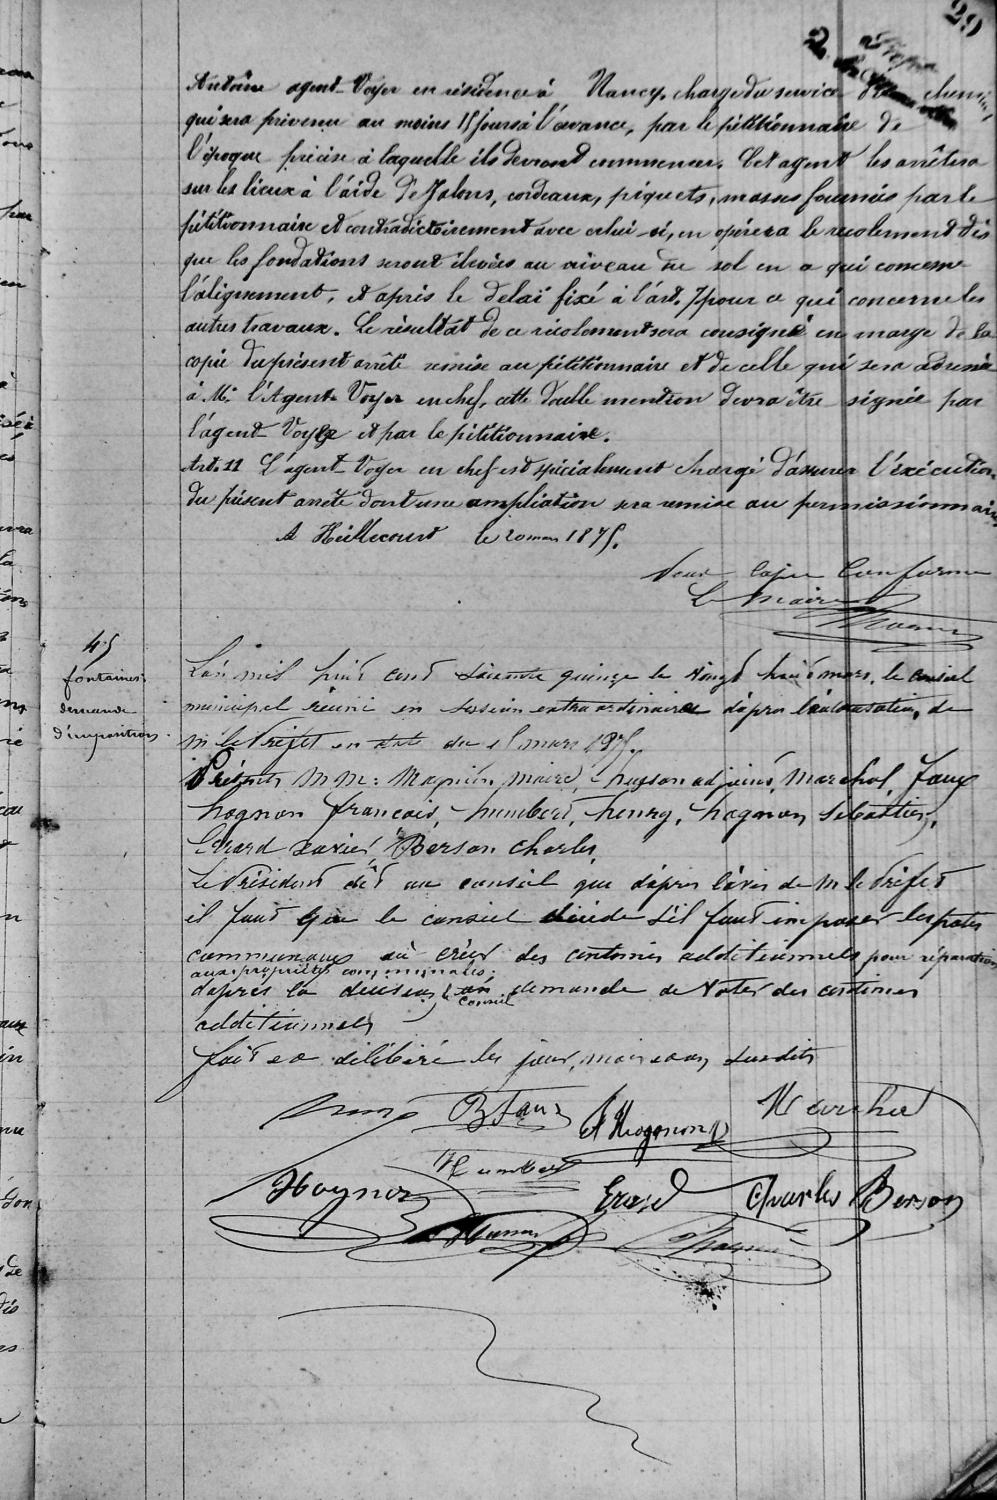 29
Antoine agent-Voyer en résidence à Nancy, chargé du service des chemins,
qui sera prévenu au moins 15 jours à l'avance, par le pétitionnaire de
l'époque précise à laquelle ils devront commencer. Cet agent les arrêtera
sur les lieux à l'aide de Jalons, cordeaux, piquets, masses fournis par le
pétitionnaire et contradictoirement avec celui-ci, en opérera le recolement dès
que les fondations seront élevées au niveau du sol en ce qui concerne
l'alignement, et après le delai fixé à l'art. 7 pour ce qui concerne les
autres travaux. Le résultat de ce récolement sera consigné en marge de la
copie du présent arrêté remise au pétitionnaire et de celle qui sera adressée
à Mr l'Agent Voyer en chef, cette double mention devra être signée par
l'agent Voyer et par le pétitionnaire.
Art. 11 L'agent Voyer en chef est spécialement chargé d'assurer l'éxécution
du présent arrêté dont une ampliation sera remise au permissionnaire
A Heillecourt le 20 mars 1875.
Pour Copie Conforme
Le Maire
45
fontaines
demande
d'imposition
L'an mil huit cent soixante quinze le vingt huit mars, le conseil
municipal réuni en session extraordinaire d'après l'autorisation de
M le Préfet en date du mars 1875.
Présents M M: Magnien maire, huyson adjoint, Marchal, faux
hognon françois, humbert, henry, hognon sebastien,
Erard xavier, Berson Charles,
Le Président dit au conseil que d'après l'avis de M le Préfet
il faut que le conseil décide s'il faut imposer les pates
communaux où créer des centimes additionnels pour réparation
aux propriétés communales.
d'après la decision, le conseil demande de voter des centimes
additionnels
fait en délibéré les jour, mois et an susdits
B Faux
Marchal
Hognon
Humbert
Hognon
Erard
Charles Berson